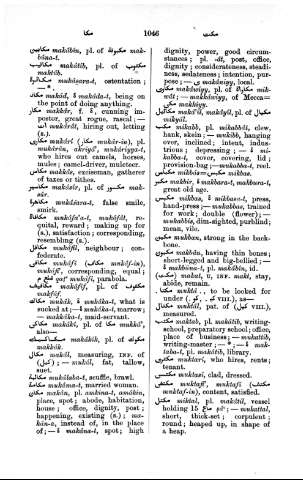 مكا
1046
مكت
مكابين makābīn, pl. of مكبونة mak-
būna-t.
مكاتيب makātīb, pl. of مكتوب
maktūb.
مكاثرة mukāṣara-t, ostentation ;
—*.
مكاد makād, ة makāda-t, being on
the point of doing anything.
مكار makkār, f. ة, cunning, im-
postor, great rogue, rascal ; —
mukārāt, hiring out, letting
(s.).
مكارى mukārī (مكار mukār-in), pl.
who hires out camels, horses,
mules; camel-driver, muleteer.
مكاس makkās, exciseman, gatherer
of taxes or tithes.
مكاسير makāsīr, pl. of مكسور mak-
sūr.
مكاشرة mukāśara-t, false smile,
smirk.
مكافاة mukāfa'a-t, mukāfāt, re-
quital, reward ; making up for
(s.), satisfaction ; corresponding,
resembling (s.).
مكافل mukāfil, neighbour ; con-
federate.
مكافى mukāfī (مكاف mukāf-in),
mukāfi', corresponding, equal ;
قطع مكافى qaṭ' mukāfī, parabola.
مكافيف makāfīf, pl. of مكفوف
makfūf.
مكاك mukāk, ة mukāka-t, what is
sucked at ; —ة mukāka-t, marrow ;
—makkāka-t, maid-servant.
مكاكى makākī, pl. of مكا mukkā',
also—
مكاكيك makākīk, pl. of مكوك
makkūk.
مكال makāl, measuring, INF. of
(كيل) ; — mukāl, fat, tallow,
suet.
مكالبة mukālaba-t, scuffle, brawl.
مكامة mukāma-t, married woman.
مكان makān, pl. amkina-t, amākin,
place, spot ; abode, habitation,
house ; office, dignity, post ;
happening, existing (s.) ; ma-
kān-a, instead of, in the place
of ; — ة makāna-t, spot ; high
dignity, power, good circum-
stances ; pl. -āt, post, office,
dignity ; considerateness, steadi-
ness, sedateness ; intention, pur-
pose ; — ى makāniyy, local.
rāt ; — makkāwiyy, of Mecca—
مكى makkiyy.
مكاييل makā'īl, makāyīl, pl. of مكيال
mikyāl.
مكب mikabb, pl. mikabbāt, clew,
hank, skein ; — mukibb, hanging
over, inclined ; intent, indus-
trious ; depressing ; — ة mi-
kabba-t, cover, covering, lid ;
provision-bag ; — mukabba-t, veal.
great old age.
مكبس mikbas, ة mikbasa-t, press,
hand-press ; — mukabbas, trained
for work ; double (flower) ; —
mukabbis, dim-sighted, purblind ;
mean, vile.
مكبون makbūn, strong in the back-
bone.
مكبون makbūn, having thin bones ;
short-legged and big-bellied ; —
ة makbūna-t, pl. makābīn, id.
(مكث) makaṡ, U, INF. makṡ, stay,
abide, remain.
مكتال muktāl, pat. of (كيل VIII.),
measured.
مكتب maktab, pl. makātib, writing-
school, preparatory school ; office,
place of business ; — mukattib,
writing-master ; — * ; — ة mak-
taba-t, pl. makātib, library.
مكترى muktarī, who hires, rents ;
tenant.
مكتسى muktasī, clad, dressed.
مكتفى muktafī', muktafī (مكتف
muktaf-in), content, satisfied.
مكتل miktal, pl. makātil, vessel
holding 15 صاع ; — mukattal,
short, thick-set ; corpulent ;
round ; heaped up, in shape of
a heap.